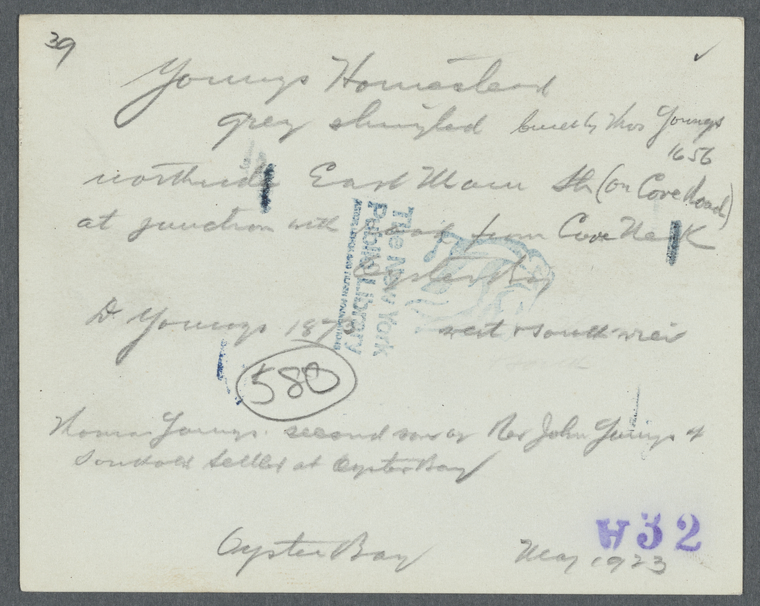 39
Youngs Homestead
grey shingled built by Thos Youngs
1656
northside East Main St (on Cove Road)
at junction with road from Cove Neck
Oyster Bay
D Youngs 1873 west & south view
580
Thomas Youngs second son of Rev John Youngs of
Southold settled at Oyster Bay
Oyster Bay May 1923
W52
The New York
Public Library